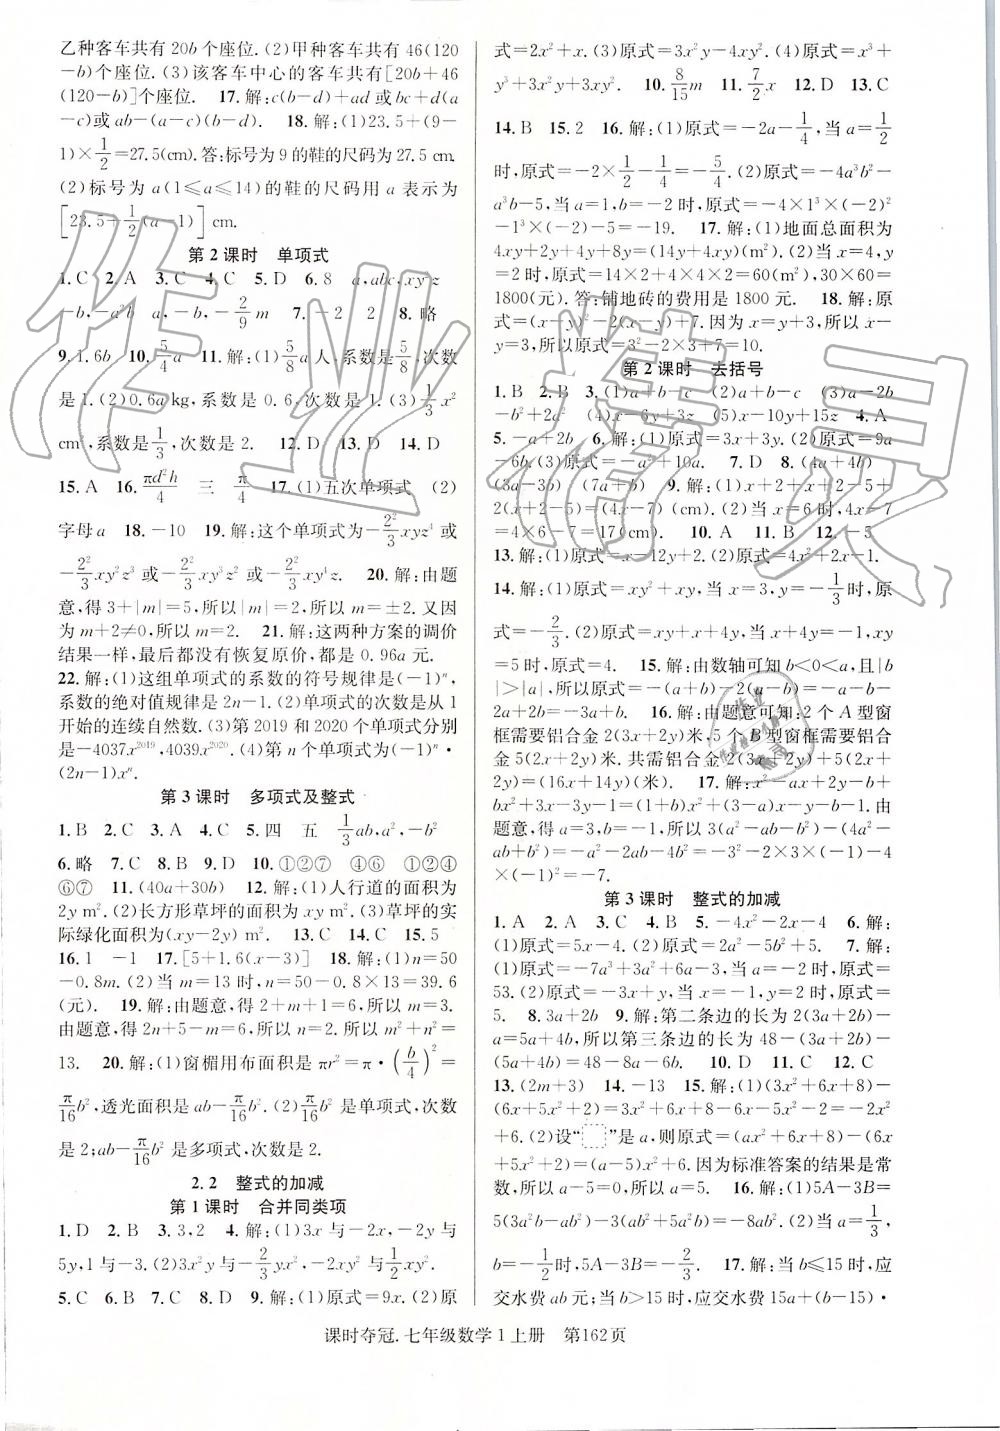 乙种客车共有 20b 个座位.(2)甲种客车共有 46(120
-b)个座位.(3)该客车中心的客车共有[20b+46
(120-b)]个座位. 17.解:c(b-d)+ad 或 bc+d(a
-c)或 ab-(a-c)(b-d). 18.解:(1)23.5+(9-
1)×1/2=27.5(cm).答:标号为 9 的鞋的尺码为 27.5 cm.
(2)标号为 a(1≤a≤14)的鞋的尺码用 a 表示为
[23.5+1/2(a-1)] cm.
第 2 课时 单项式
1.C 2.A 3.C 4.C 5.D 6.8 a,abc,xyz
-b,-a²b a,-b,-2/9m 7.-2 2 8.略
9.1.6b 10.5/4a 11.解:(1)5/8a 人,系数是5/8,次数
是 1.(2)0.6a kg,系数是 0.6,次数是 1.(3)1/3x²
cm,系数是1/3,次数是 2. 12.D 13.D 14.D
15.A 16.πd²h/4 三 π/4 17.(1)五次单项式 (2)
字母 a 18.-10 19.解:这个单项式为-2²/3xyz⁴ 或
-2²/3xy²z³ 或-2²/3xy³z² 或-2²/3xy⁴z. 20.解:由题
意,得 3+|m|=5,所以|m|=2,所以 m=±2.又因
为 m+2≠0,所以 m=2. 21.解:这两种方案的调价
结果一样,最后都没有恢复原价,都是 0.96a 元.
22.解:(1)这组单项式的系数的符号规律是(-1)ⁿ,
系数的绝对值规律是 2n-1.(2)单项式的次数是从 1
开始的连续自然数.(3)第 2019 和 2020 个单项式分别
是-4037x²⁰¹⁹,4039x²⁰²⁰.(4)第 n 个单项式为(-1)ⁿ·
(2n-1)xⁿ.
第 3 课时 多项式及整式
1.B 2.C 3.A 4.C 5.四 五 1/3ab,a²,-b²
6.略 7.C 8.B 9.D 10.①②⑦ ④⑥ ①②④
⑥⑦ 11.(40a+30b) 12.解:(1)人行道的面积为
2y m².(2)长方形草坪的面积为 xy m².(3)草坪的实
际绿化面积为(xy-2y) m². 13.C 14.C 15.5
16.1 -1 17.[5+1.6(x-3)] 18.解:(1)n=50
-0.8m.(2)当 m=13 时,n=50-0.8×13=39.6
(元). 19.解:由题意,得 2+m+1=6,所以 m=3.
由题意,得 2n+5-m=6,所以 n=2.所以 m²+n²=
13. 20.解:(1)窗楣用布面积是 πr²=π·(b/4)²=
π/16b²,透光面积是 ab-π/16b².(2)π/16b² 是单项式,次数
是 2;ab-π/16b² 是多项式,次数是 2.
2.2 整式的加减
第 1 课时 合并同类项
1.D 2.B 3.3,2 4.解:(1)3x 与-2x,-2y 与
5y,1 与-3.(2)3x²y 与-2/3yx²,-2xy² 与1/2xy².
5.C 6.B 7.C 8.D 9.解:(1)原式=9x.(2)原
式=2x²+x.(3)原式=3x²y-4xy².(4)原式=x³+
y³+3x²y+3xy². 10.8/15m 11.7/2x 12.D 13.C
14.B 15.2 16.解:(1)原式=-2a-1/4,当 a=1/2
时,原式=-2×1/2-1/4=-5/4.(2)原式=-4a³b²-
a³b-5,当 a=1,b=-2 时,原式=-4×1³×(-2)²
-1³×(-2)-5=-19. 17.解:(1)地面总面积为
4xy+2y+4y+8y=(14y+4xy)(m²).(2)当 x=4,y=2
时,原式=14×2+4×4×2=60(m²),30×60=
1800(元).答:铺地砖的费用是 1800 元. 18.解:原
式=(x-y)²-2(x-y)+7.因为 x=y+3,所以 x-
y=3,所以原式=3²-2×3+7=10.
第 2 课时 去括号
1.B 2.B 3.(1)a+b-c (2)a+b-c (3)a-2b
-b²+a² (4)x-6y+3z (5)x-10y+15z 4.A
5.-a+2b 6.解:(1)原式=3x+3y.(2)原式=9a
-6b.(3)原式=-a²-10a. 7.D 8.(4a+4b)
(3a-3b) (7a+b) 9.解:(1)2(x-2+x)+5+
2(x-2+5)=(4x-7) (cm).(2)当 x=6 时,4x-7
=4×6-7=17(cm). 10.A 11.B 12.-5
13.解:(1)原式=x-12y+2.(2)原式=4x²+2x-1.
14.解:(1)原式=xy²+xy,当 x=-1,y=-1/3时,原
式=-2/3.(2)原式=xy+x+4,当 x+4=-1,xy
=5 时,原式=5-1=4. 15.解:由数轴可知 b<0<a,且|b
|>|a|,所以 a>0,a+b<0.所以原式=-a-a-b
-2b=-2a-3b. 16.解:由题意可知:2 个 A 型窗
框需要铝合金 2(3x+2y)米,5 个 B 型窗框需要铝合
金 5(2x+2y)米.共需铝合金 2(3x+2y)+5(2x+
2y)=(16x+14y)(米). 17.解:原式=2x²+ax-y+
6-bx²-2x+5y-1=(2-b)x²+(a-2)x+4y+5.由
题意,得 a=3,b=-1,所以 3(a²-ab-b²)-(4a²-
ab+b²)=-a²-2ab-4b²=-3²-2×3×(-1)-4
×(-1)²=-7.
第 3 课时 整式的加减
1.A 2.A 3.C 4.B 5.-4x²-2x-4 6.解:
(1)原式=5x-4.(2)原式=2a²-5b²+5. 7.解:
(1)原式=-7a³+3a²+6a-3,当 a=-2 时,原式=
53.(2)原式=x²-xy,当 x=-1,y=4 时,原式=
5. 8.3a+2b 9.解:第二条边的长为 2(a+2b)-
a=5+4b-5=a+4b.所以第三条边的长为 48-(a+2b)-
(5a+4b)=48-8a-6b. 10.D 11.C 12.C
13.(2m+3) 14.-13 15.解:(1)(3x²+6x+8)-
(6x+5x²+2)=3x²+6x+8-6x-5x²-2=-2x²
+6.(2)设“□”是 a,则原式=(ax²+6x+8)-(6x
+5x²+2)=(a-5)x²+6.因为标准答案的结果是常
数,所以 a-5=0,解得 a=5. 16.解:(1)5A-3B=
5(3a²b-ab²)-3(ab²+5a²b)=-8ab².(2)当 a=1/3,
b=-1/2时,5A-3B=-2/3. 17.解:当 b≤15 时,应
交水费 ab 元;当 b>15 时,应交水费 15a+(b-15)·
课时夺冠.七年级数学 1 上册 第162页
作业精灵